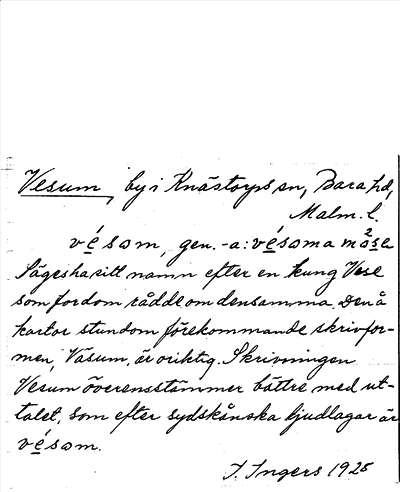 Vesum, by i Knästorps sn, Bara hd,
Malm. l.
vésɘm, gen. -a: vésɘma
Säges ha sitt namn efter en kung Vese
som fordom rådde om densamma. Den å
kartor stundom förekommande skrivfor-
men, Väsum, är oriktig. Skrivningen
Vesum överensstämmer bättre med ut-
talet, som efter sydskånska ljudlagar är
vésɘm.
I. Ingers 1925